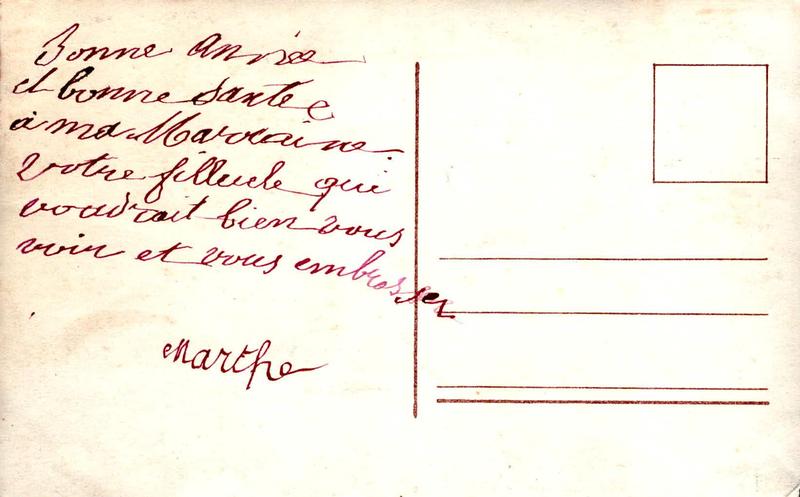 Bonne Année
et bonne Santée
à ma Marraine.
Votre filleule qui
voudrait bien vous
voir et vous embrasser
Marthe